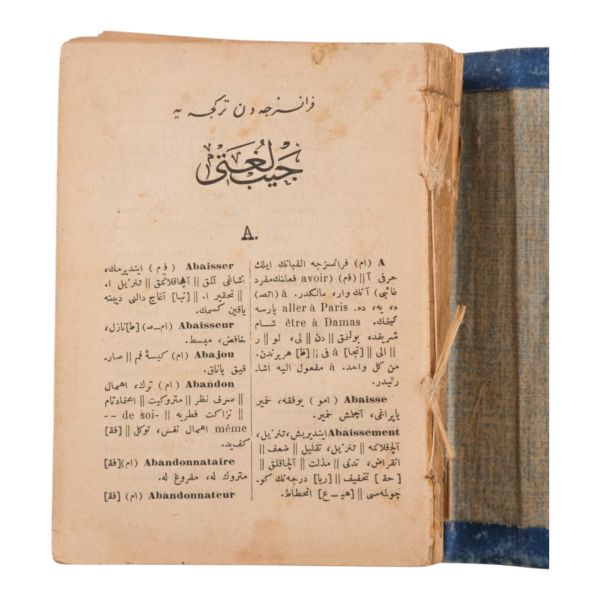 فرانسزجه دن تركجه يه
جيب لغتى
A.
A (ام) فرانسزجه الفبانك ايلك
حرفى آ || (فم) avoir فعلنك مفرد
غائبى) آنك وار، مالكدر. à (اتص)
ه، يه، ده. aller à Paris پارسه
گيتمك. être à Damas شام
شريفده بولنمق || دن || لى، لو || ر
|| الى || [تجا] à فى || [ظ] هر برندن.
من كل واحد. à مفعول اليه اشا-
رتيدر.
Abaisse (امو) يوفقه، خمير
ياپراغى، آچلمش خمير.
Abaissement اينديريش، تنزيل،
آلچاقلانمه || تنزيل، تقليل || ضعف ||
انقراض، تدنى || مذلت || آلچاقلق ||
[حق] تخفيف || [ريا] درجه نك كو-
چولمه سى || [هيـ ـع] انحطاط.
Abaisser (فم) اينديرمك،
اشاغى آلمق || آلچاقلاتمق || تنزيل ا.
|| تحقير ا. || [نبا] آغاج دالنى ديبنه
ياقين كسمك.
Abaisseur (ام‌ـص) [ط] نازل،
خافض، مبسط.
Abajou (ام) كيسهٔ فم || صار-
قيق ياناق.
Abandon (ام) ترك، اهمال
|| صرف نظر || متروكيت || اعتمادتام
|| نزاكت فطريه || de soi-
même اهمال نفس، توكل || [فق]
كف يد.
Abandonnataire (ام) [فق]
متروك له، مفروغ له.
Abandonnateur (ام) [فق]